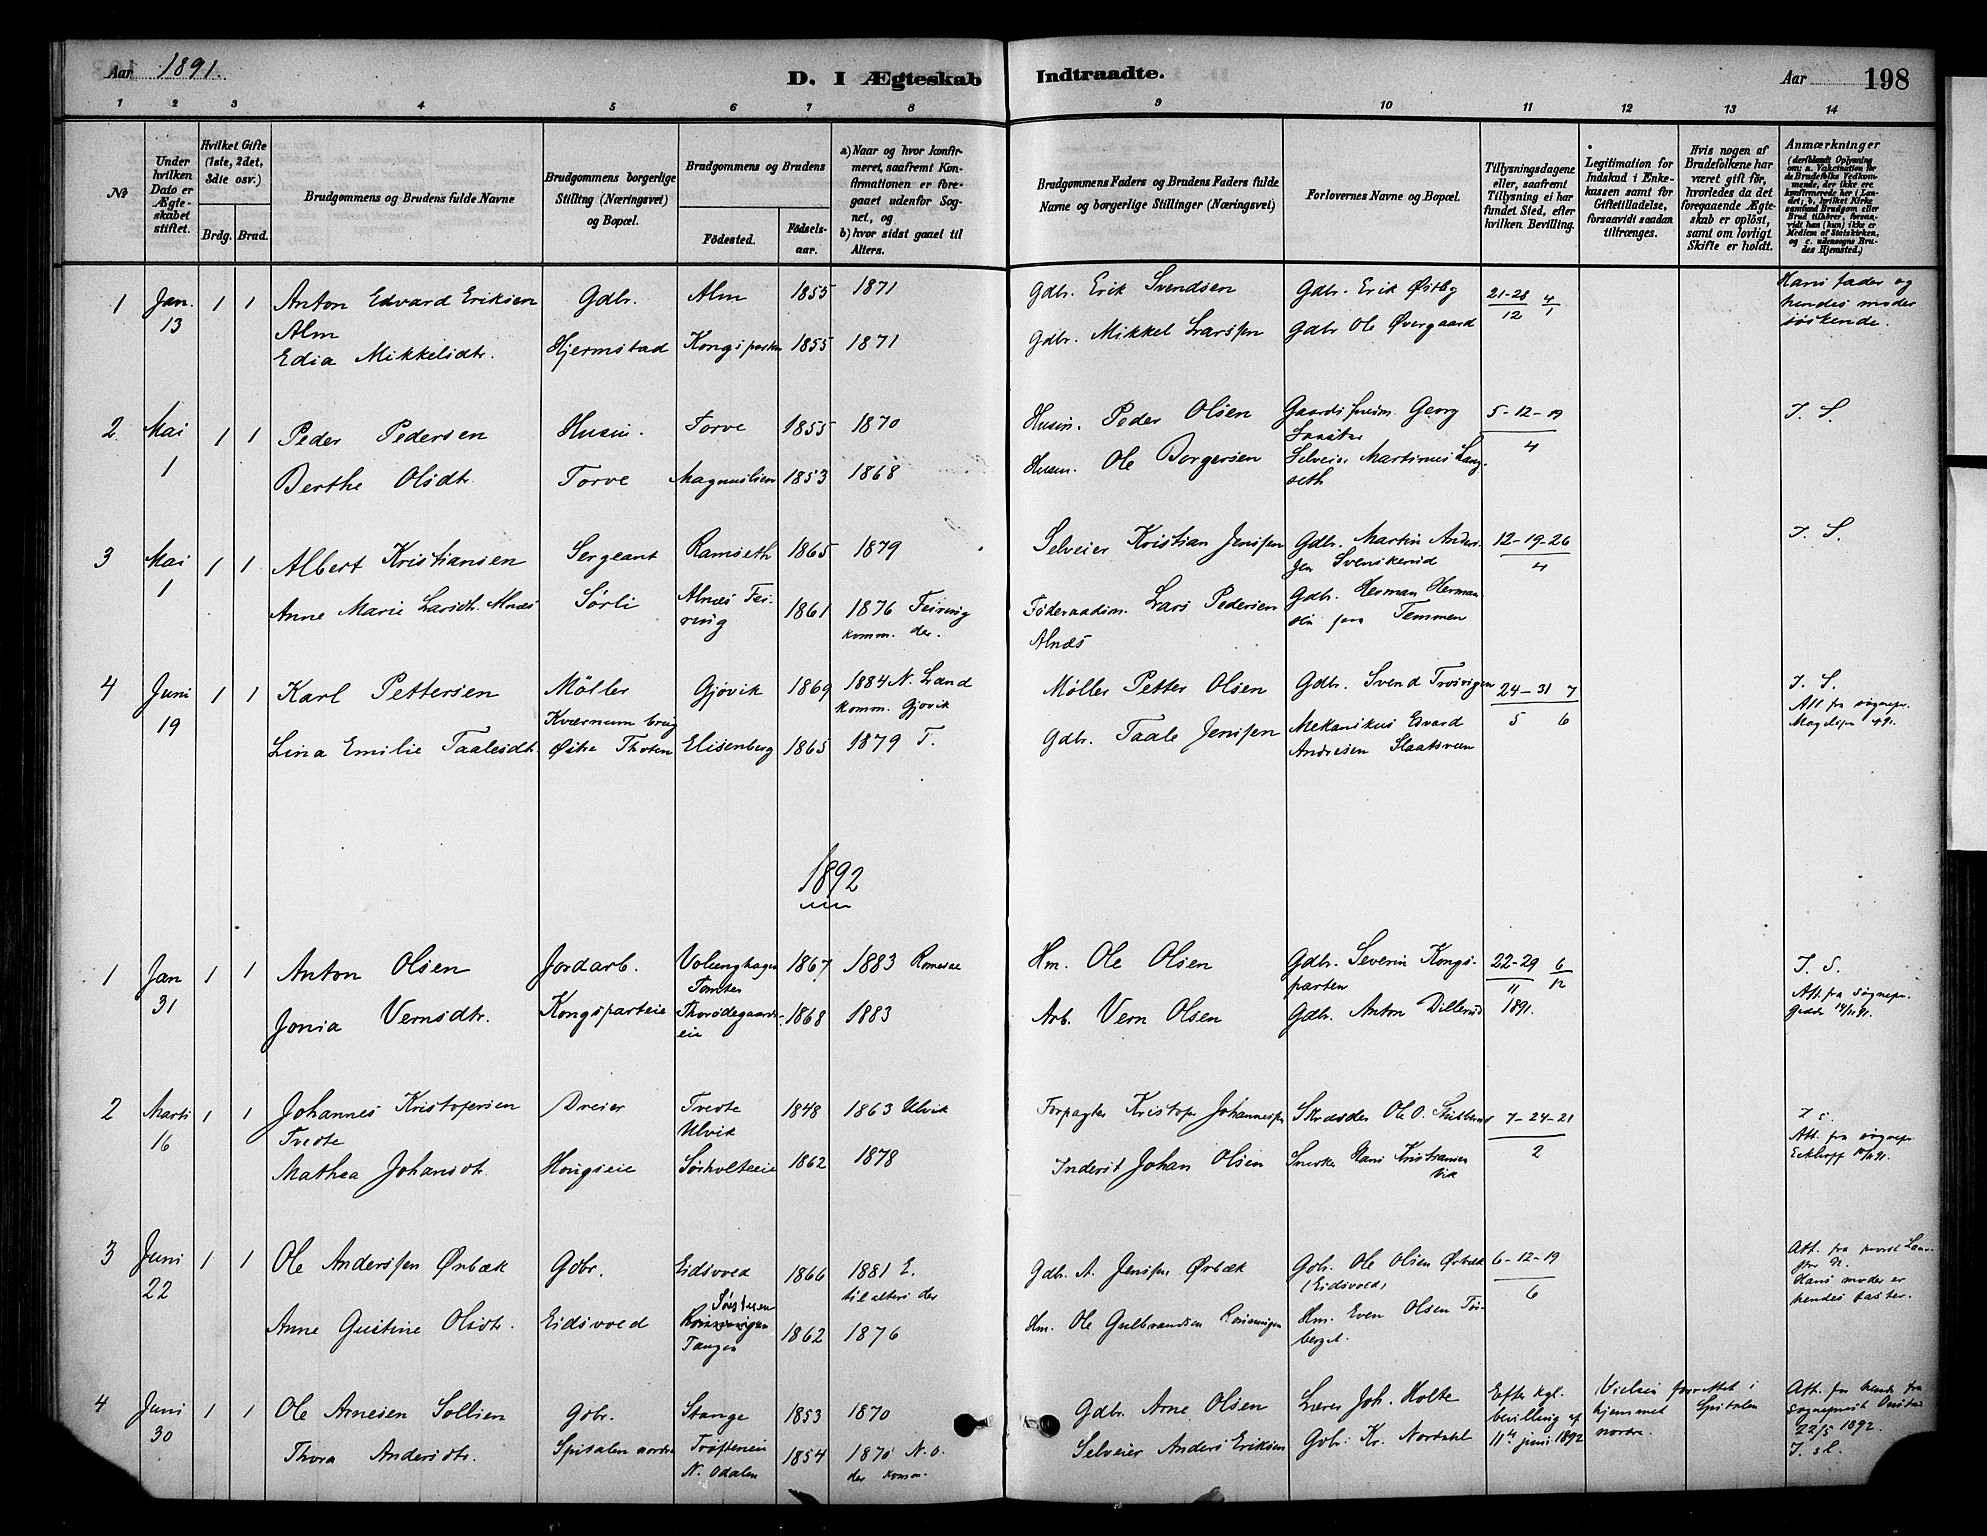 Aar 1891.
D. I Ægteskab Indtraadte.
Aar 198
1 2 3 4 5 6 7 8 9 10 11 12 13 14
№
Under hvilken Dato er Ægteskabet stiftet.
Hvilket Gifte (1ste, 2det, 3die osv.)
Brdg. Brud.
Brudgommens og Brudens fulde Navne
Brudgommens borgerlige Stilling (Næringsvei) og Bopæl.
Brudgommens og Brudens
Fødested. Fødselsaar.
a) Naar og hvor konfirmeret, saafremt Konfirmationen er foregaaet udenfor Sognet, og
b) hvor sidst gaaet til Alters.
Brudgommens Faders og Brudens Faders fulde Navne og borgerlige Stillinger (Næringsvei)
Forlovernes Navne og Bopæl.
Tillysningsdagene eller, saafremt Tillysning ei har fundet Sted, efter hvilken Bevilling.
Legitimation for Indskud i Enkekassen samt for Giftetilladelse, forsaavidt saadan tiltrænges.
Hvis nogen af Brudefolkene har været gift før, hvorledes da det foregaaende Ægteskab er opløst, samt om lovligt Skifte er holdt.
Anmærkninger (deriblandt Oplysning om: a. Vakcination for de Brudefolks Vedkommende, der ikke ere konfirmerede her i Landet; b, hvilket Kirkesamfund Brudgom eller Brud tilhører, forsaavidt han (hun) ikke er Medlem af Statskirken, og c. udensogns Brudes Hjemsted.)
1 Jan. 13 1 1 Anton Edvard Eriksen Gdbr. Alm 1855 1871 Gdbr. Erik Svendsen Gdbr. Erik Østby 21-28 4 Hans fader og
Alm 12 1 hendes moder
Edia Mikkelsdtr. Hjermstad Kongsparten 1855 1871 Gdbr. Mikkel Larssen Gdbr Ole Øvergaard søskende.
2 Mai 1 1 1 Peder Pedersen Husm. Torve 1855 1870 Husm. Peder Olsen Gaards Georg 5-12-19 J. S.
4
Berthe Olsdtr. Torve Magnuslien 1853 1868 Husm. Ole Borgersen Selveier Martinus Lang-
seth
3 Mai 1 1 1 Albert Kristiansen Sergeant Ramseth 1865 1879 Selveier Kristian Jenssen Gdbr. Martin Anders- 12-19-26 J. S.
sen Svenskerud 4
Anne Marie Larsdtr. Alnæs Sørli Alnæs Fei- 1861 1876 Feiring Lars Pedersen Gdbr. Herman Herman
ring komm. der. Alnæs Temmen
4 Juni 19 1 1 Karl Pettersen Møller Gjøvik 1869 1884 N. Land Møller Petter Olsen Gdbr. Svend Trosvigen 24-31 7 J. S.
Kværnum brug komm. Gjøvik 5 6 Att fra sognepr.
Lina Emilie Taalesdtr. Østre Thoten Elisenberg 1865 1879 T. Gdbr. Taale Jenssen Mekanikus Edvard
Andresen Slaatsveen
1892
1 Jan 31 1 1 Anton Olsen Jordarb. 1867 1883 Romedal Hm. Ole Olsen Gdbr. Severin Kongs- 22-29 6 J. S.
Tomter parten 11 12 Att. fra sognepr.
Jonia Vernsdtr. Kongsparteie Thorsødegaards- 1868 1883 Arb. Vern Olsen Gdbr. Anton Dillerud 1891.
eie
2 Marts 16 1 1 Johannes Kristofersen Dreier Tvedte 1848 1863 Ulvik Forpagter Kristofer Johannessen Skrædder Ole O. 7-24-21 J. S.
Tvedte Ulvik 2 Att. fra sognepr.
Mathea Johansdtr. Hougseie Sørholteeie 1862 1878 Inderst Johan Olsen Snerker Hans Kristiansen
Vik
3 Juni 22 1 1 Ole Anderssen Ørbæk Gdbr. Eidsvold 1866 1881 E. Gdbr. A. Jenssen Ørbæk Gdbr. Ole Olsen Ørbæk 6-12-19 Att. fra
til alters der (Eidsvold) 6 Hans moder er
Anne Gustine Olsdtr. Eidsvold 1862 1876 Hm. Ole Gulbrandsen Hm. Even Olsen Tos- hendes faster.
Tangen berget.
4 Juni 30 1 1 Ole Arnesen Sollien Gdbr. Stange 1853 1870 Gdbr. Arne Olsen Lærer Joh. Holte Efter kgl. Vielsen forrettet i Att. for hende fra
bevilling af hjemmet Spitalen sogneprest
Thora Andersdtr. Spitalen nordre N. Odalen 1854 1870 N. O. Selveier Anders Eriksen Gdbr. Kr. Nordahl 11te juni 1892 nordre. 22/5 1892.
der komm.